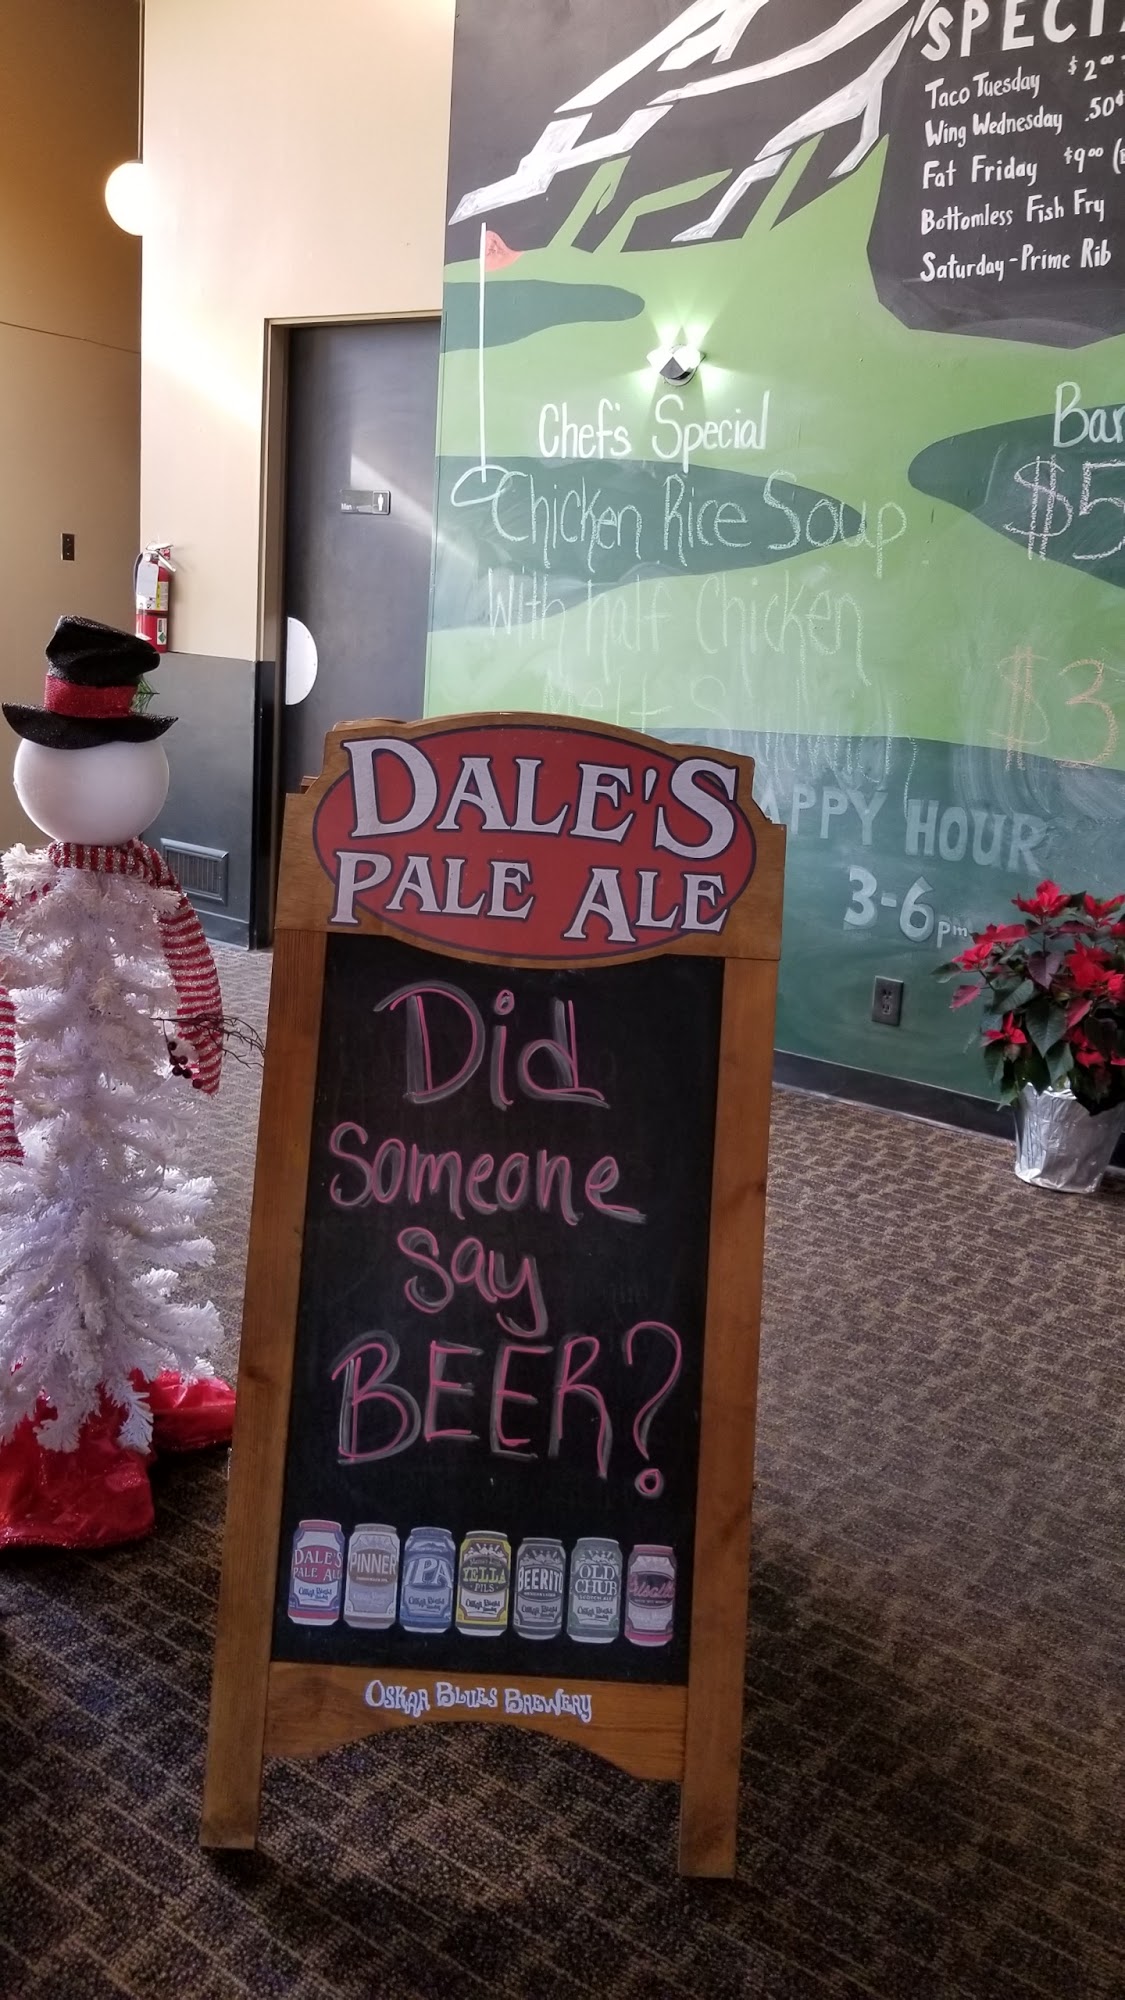 Taco Tuesday $2.00
Wing Wednesday .50¢
Fat Friday $9.00
Bottomless Fish Fry
Saturday - Prime Rib
Chef's Special
Chicken Rice Soup
With half Chicken
Melt
$5
$3
HAPPY HOUR
3-6pm
Men
DALE'S
PALE ALE
Did
Someone
say
BEER?
DALE'S
PALE ALE
PINNER
IPA
YELLA
PILS
OLD
CHUB
OSKAR BLUES BREWERY